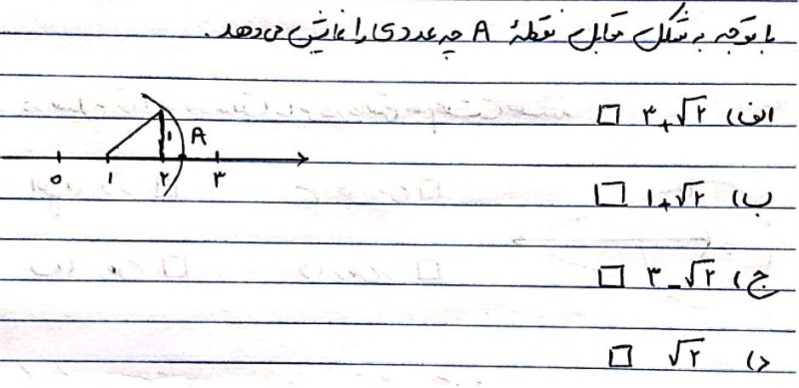 با توجه به شکل مقابل نقطهٔ A چه عددی را نمایش می‌دهد.
الف) ۳+√۲ □
ب) ۱+√۲ □
ج) ۳-√۲ □
د) √۲ □
۱ A
۰ ۱ ۲ ۳